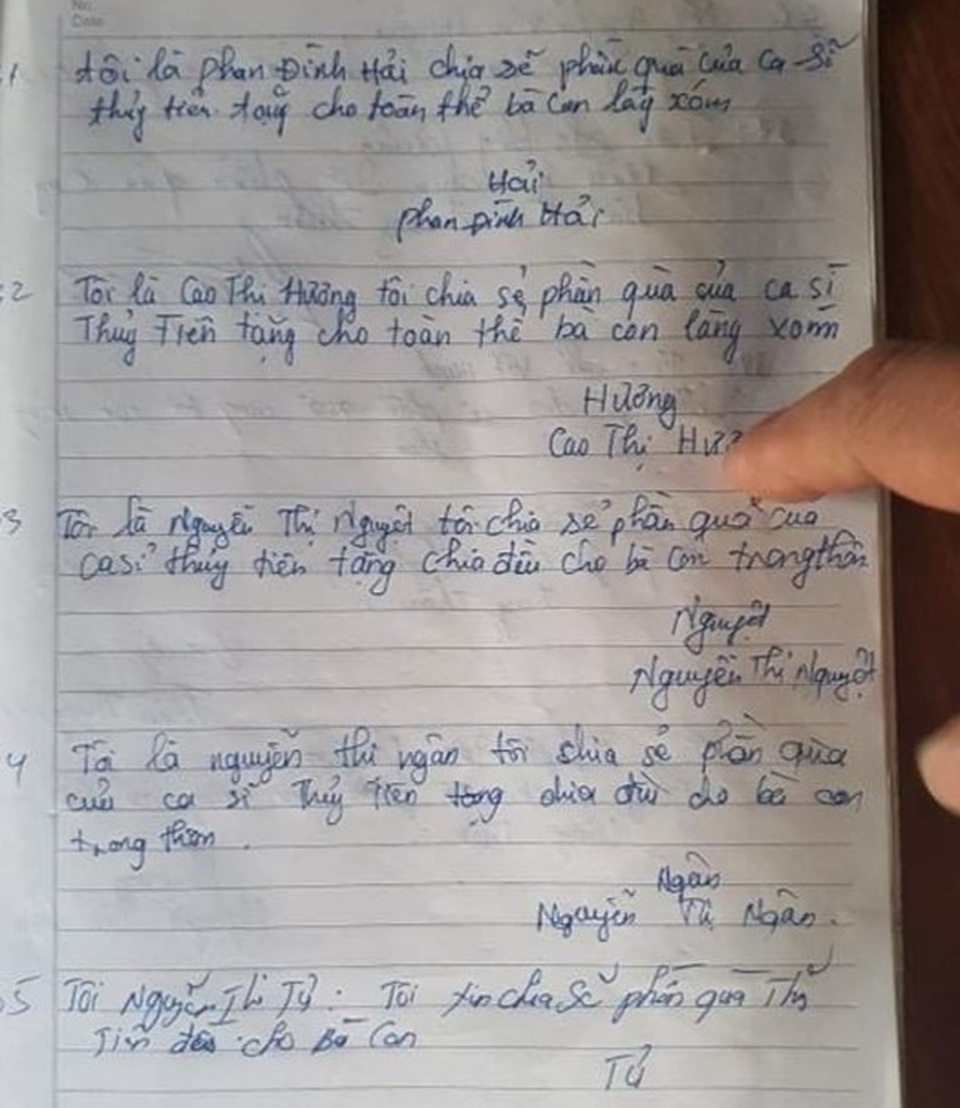 No.
Date
1 tôi là phan Đình Hải chia sẽ phần quà của ca sĩ
thủy tiên tặng cho toàn thể bà con lảy xóm
Hải
phan Đình Hải
2 Tôi là Cao Thị Hương tôi chia sẻ phần quà của ca sĩ
Thuỷ Tiên tặng cho toàn thể bà con làng xóm
Hương
Cao Thị
3 Tôi là Nguyễn Thị Nguyệt tôi chia sẻ phần quà của
ca sĩ thủy tiên tặng chia đều cho bà con trong thôn
Nguyệt
Nguyễn Thị Nguyệt
4 Tôi là nguyễn thi ngân tôi chia sẻ phần qùa
của ca sĩ Thủy Tiên tặng chia đều cho bà con
trong thôn.
Ngân
Nguyễn Thị Ngân.
5 Tôi Nguyễn Thị Tử: Tôi xin chia sẻ phần quà Thủy
Tiên đều cho Bà Con
Tử